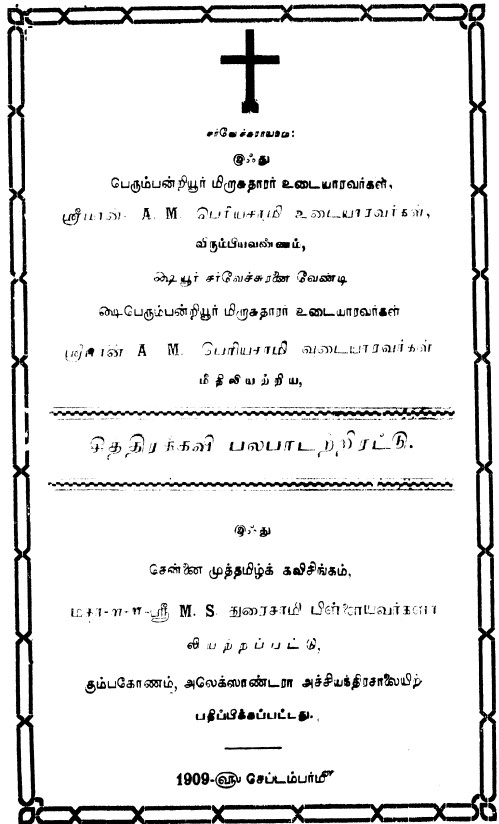 சர்வேச்சுராயநம:
இஃது
பெரும்பன்றியூர் மிறாசுதாரர் உடையாரவர்கள்,
ஸ்ரீமான்- A. M. பெரியசாமி உடையாரவர்கள்,
விரும்பியவண்ணம்,
௸யூர் சர்வேச்சுரனை வேண்டி
௸பெரும்பன்றியூர் மிறாசுதாரர் உடையாரவர்கள்
ஸ்ரீமான் A M. பெரியசாமி உடையாரவர்கள்
மீதிலியற்றிய,
சித்திரக்கவி பலபாடற்றிரட்டு.
இஃது
சென்னை முத்தமிழ்க் கவிசிங்கம்,
மகா-ள-ள-ஸ்ரீ M. S. துரைசாமி பிள்ளையவர்களா
லியற்றப்பட்டு,
கும்பகோணம், அலெக்ஸாண்டரா அச்சியந்திரசாலையிற்
பதிப்பிக்கப்பட்டது.
1909-௵ செப்டம்பர்௴